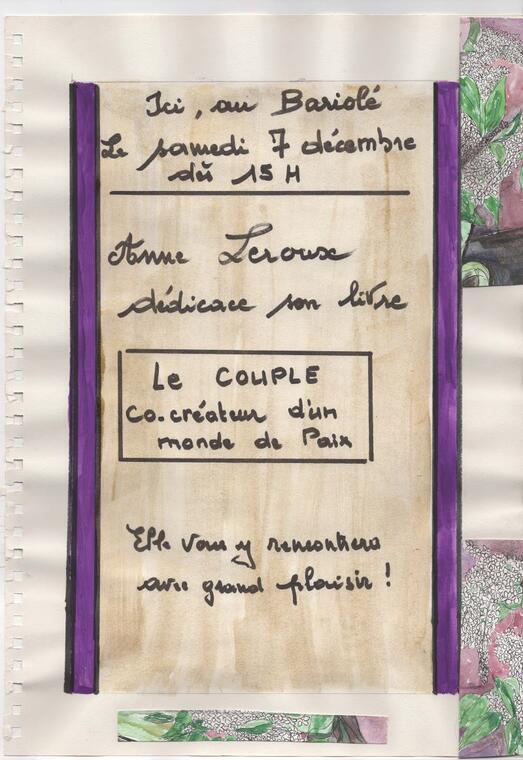 Ici, au Bariolé
Le samedi 7 décembre
dès 15 H
Anne Leroux
dédicace son livre
Le COUPLE
co.créateur d'un
monde de Paix
Elle vous y rencontrera
avec grand plaisir !